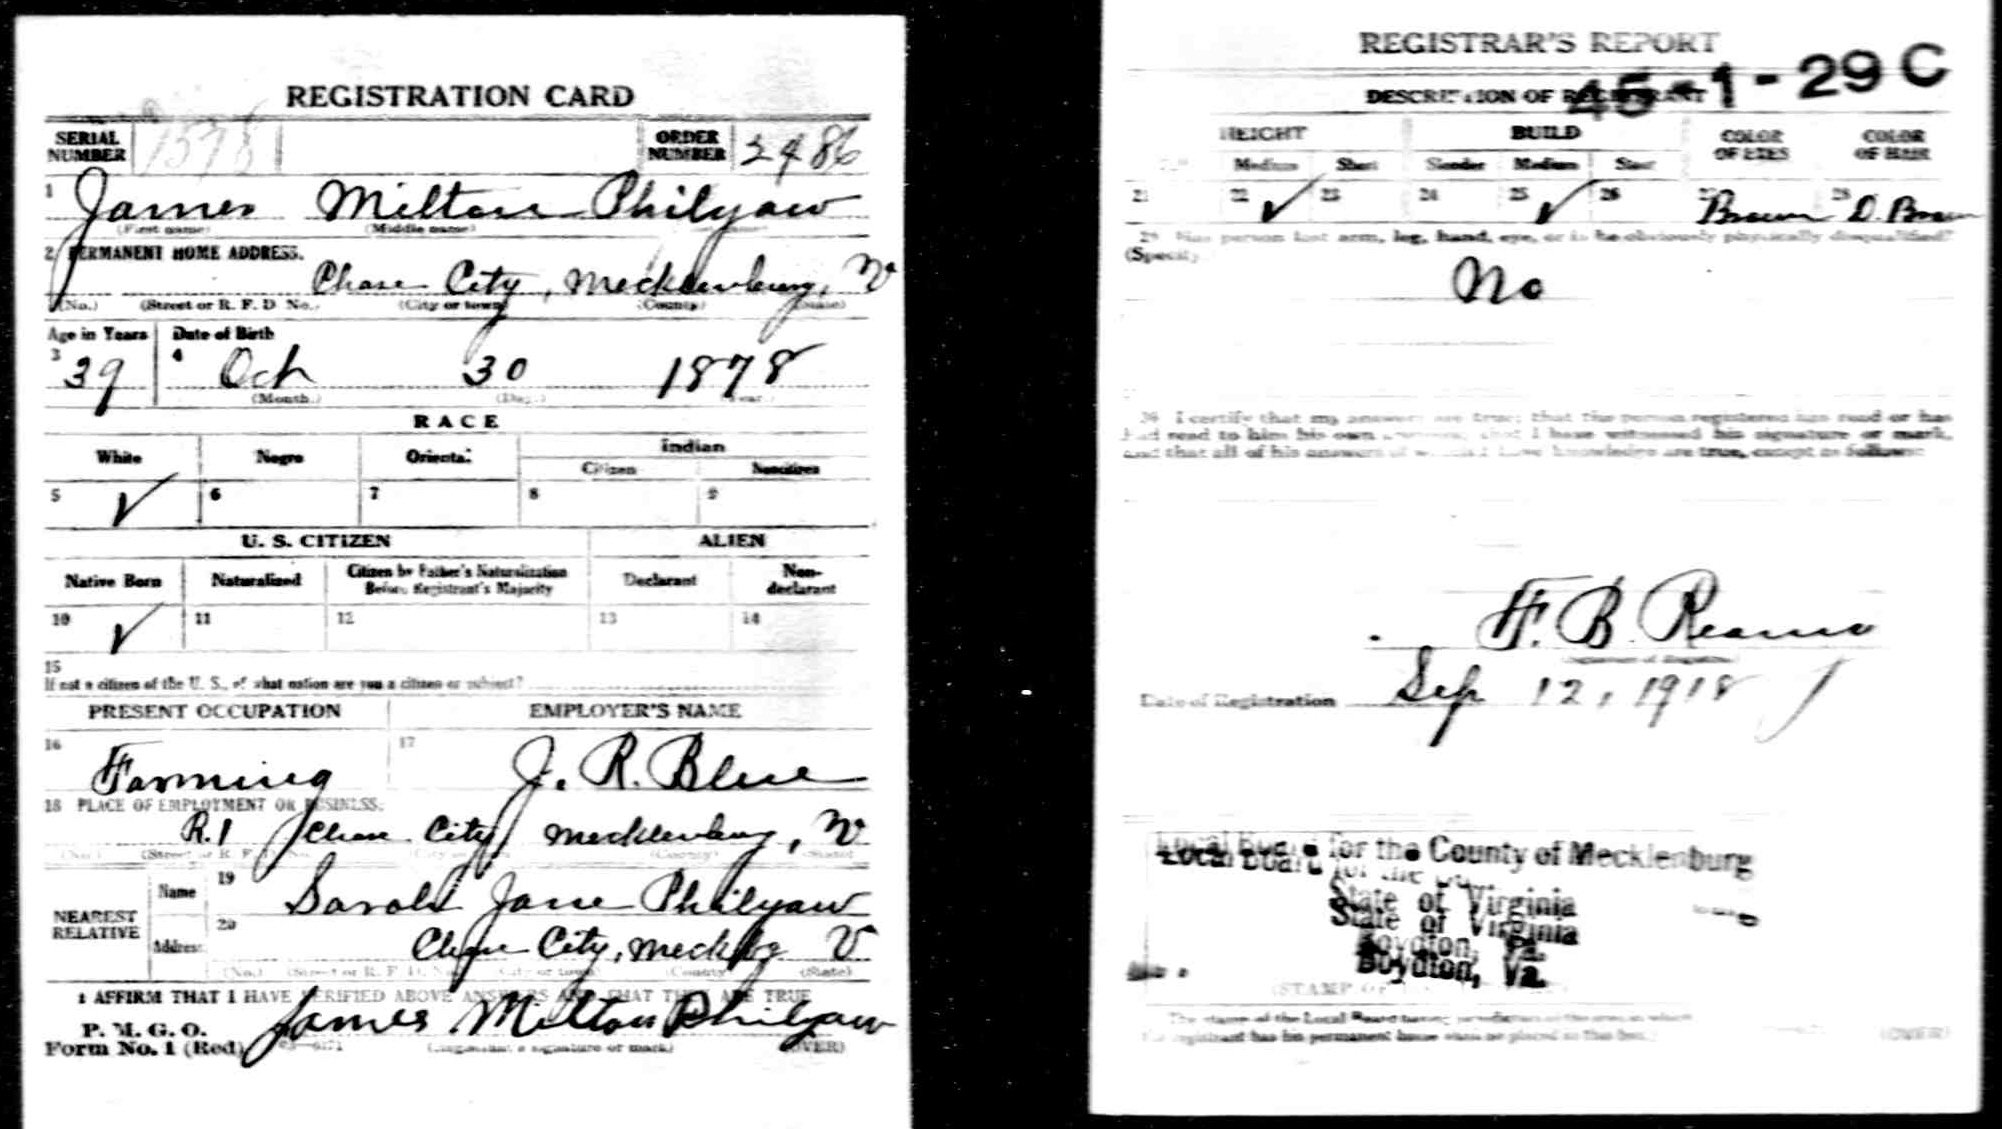 REGISTRATION CARD
SERIAL NUMBER 1573 ORDER NUMBER 2486
1 James Milton Philyaw
(First name) (Middle name)
2 PERMANENT HOME ADDRESS.
Chase City, Mecklenburg, V
(No.) (Street or R. F. D No.) (City or town) (County) (State)
Age in Years Date of Birth
3 39 4 Oct 30 1878
(Month.) (Day.) (Year.)
RACE
White Negro Oriental Indian
Citizen Noncitizen
5 ✓ 6 7 8 9
U. S. CITIZEN ALIEN
Native Born Naturalized Citizen by Father's Naturalization Before Registrant's Majority Declarant Non-declarant
10 ✓ 11 12 13 14
15
If not a citizen of the U. S., of what nation are you a citizen or subject?
PRESENT OCCUPATION EMPLOYER'S NAME
16 Farming 17 J. R. Blue
18 PLACE OF EMPLOYMENT OR BUSINESS.
R.1 Chase City Mecklenburg, V
(No.) (Street or R. F. (County) (State)
NEAREST RELATIVE Name 19 Sarah Jane Philyaw
Address 20 Chase City, Meckbg V
(No.) (Street or R. F. D. No.) (City or town) (County) (State)
I AFFIRM THAT I HAVE VERIFIED ABOVE ANSWERS AND THAT THEY ARE TRUE
P. M. G. O.
Form No. 1 (Red) James Milton Philyaw
(Registrant's signature or mark) (OVER)
REGISTRAR'S REPORT
45-1-29 C
DESCRIPTION OF REGISTRANT
HEIGHT BUILD COLOR OF EYES COLOR OF HAIR
Medium Short Slender Medium Stout
21 22 ✓ 23 24 25 ✓ 26 27 Brown 28 D. Brown
29 Has person lost arm, leg, hand, eye, or is he obviously physically disqualified?
(Specify.)
No
30 I certify that my answers are true; that the person registered has read or has
had read to him his own answers; that I have witnessed his signature or mark,
and that all of his answers of which I have knowledge are true, except as follows:
(Signature of Registrar)
Date of Registration Sep 12, 1918
Local Board for the County of Mecklenburg
Local Board for the
State of Virginia
State of Virginia
Boydton, Va.
Boydton, Va.
(STAMP OF
The stamp of the Local Board having jurisdiction of the area in which
the registrant has his permanent home shall be placed in this box.)
(OVER)